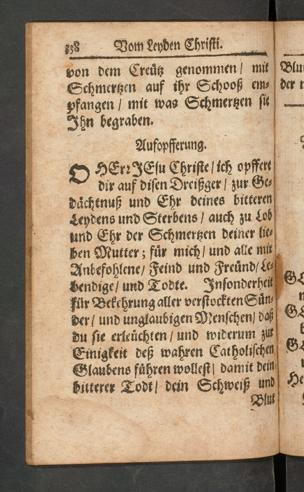 238 Vom Leyden Christi.
von dem Creütz genommen / mit
Schmertzen auf ihr Schooß em-
pfangen / mit was Schmertzen sie
Ihn begraben.
Aufopfferung.
O HErr JEsu Christe / ich opffere
dir auf disen Dreißger / zur Ge-
dächtnuß und Ehr deines bitteren
Leydens und Sterbens / auch zu Lob
und Ehr der Schmertzen deiner lie-
ben Mutter; für mich / und alle mir
Anbefohlene / Feind und Freünd / Le-
bendige / und Todte. Insonderheit
für Bekehrung aller verstockten Sün-
der / und unglaubigen Menschen / daß
du sie erleüchten / und widerum zur
Einigkeit deß wahren Catholischen
Glaubens führen wollest / damit dein
bitterer Todt / dein Schweiß und
Blut